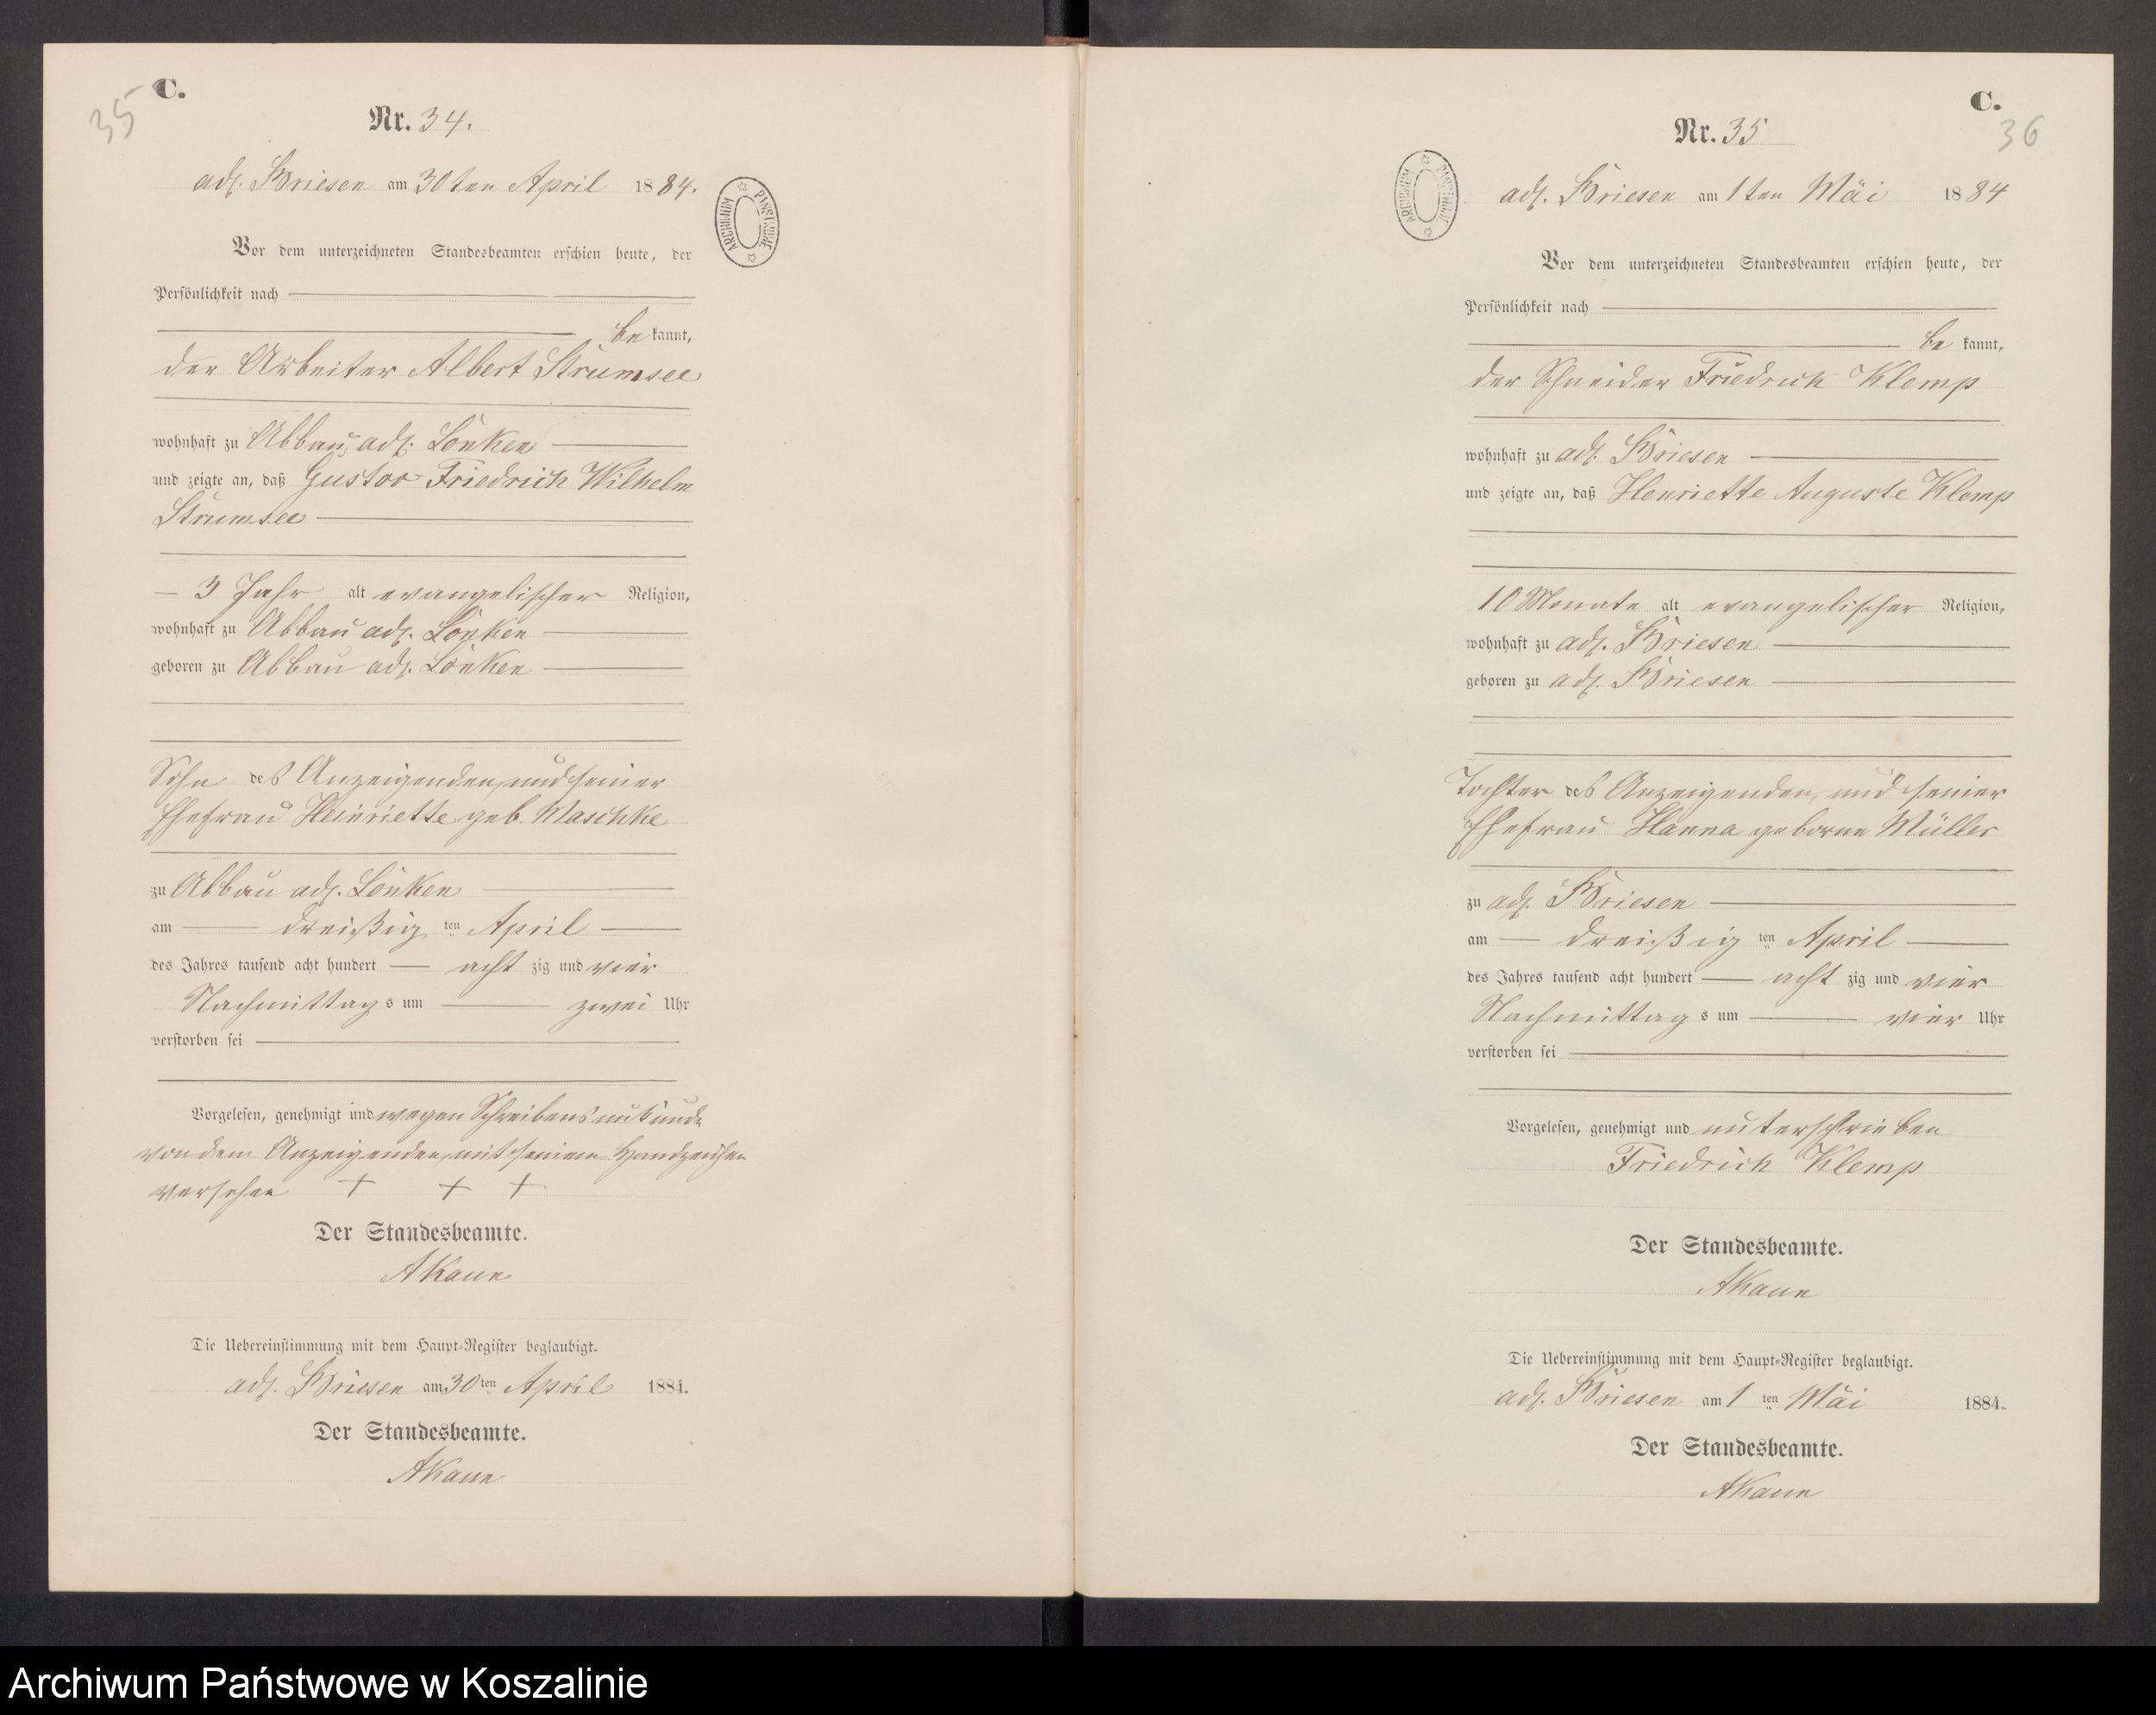 35
C.
Nr. 34.
adl. Briesen am 30ten April 1884.
ARCHIWUM PAŃSTWOWE
Vor dem unterzeichneten Standesbeamten erschien heute, der
Persönlichkeit nach
be kannt,
der Arbeiter Albert Strumsee
wohnhaft zu Abbau adl. Lonken
und zeigte an, daß Gustav Friedrich Wilhelm
Strumsee
3 Jahr alt evangelischer Religion,
wohnhaft zu Abbau adl. Lonken
geboren zu Abbau adl. Lonken
Sohn des Anzeigenden, und seiner
Ehefrau Heinriette geb. Maschke
zu Abbau adl. Lonken
am dreißig ten April
des Jahres tausend acht hundert acht zig und vier
Nachmittag s um zwei Uhr
verstorben sei
Vorgelesen, genehmigt und wegen Schreibensunkunde
von dem Anzeigenden, mit seinem Handzeichen
versehen + + +
Der Standesbeamte.
Die Uebereinstimmung mit dem Haupt-Register beglaubigt.
adl. Briesen am 30 ten April 1884.
Der Standesbeamte.
C.
36
Nr. 35
adl. Briesen am 1ten Mai 1884
ARCHIWUM PAŃSTWOWE
Vor dem unterzeichneten Standesbeamten erschien heute, der
Persönlichkeit nach
be kannt,
der Schneider Friedrich Klemp
wohnhaft zu adl. Briesen
und zeigte an, daß Henriette Auguste Klemp
10 Monate alt evangelischer Religion,
wohnhaft zu adl. Briesen
geboren zu adl. Briesen
Tochter des Anzeigenden, und seiner
Ehefrau Hanna geborne Müller
zu adl. Briesen
am dreißig ten April
des Jahres tausend acht hundert acht zig und vier
Nachmittag s um vier Uhr
verstorben sei
Vorgelesen, genehmigt und unterschrieben
Friedrich Klemp
Der Standesbeamte.
Die Uebereinstimmung mit dem Haupt-Register beglaubigt.
adl. Briesen am 1 ten Mai 1884.
Der Standesbeamte.
Archiwum Państwowe w Koszalinie